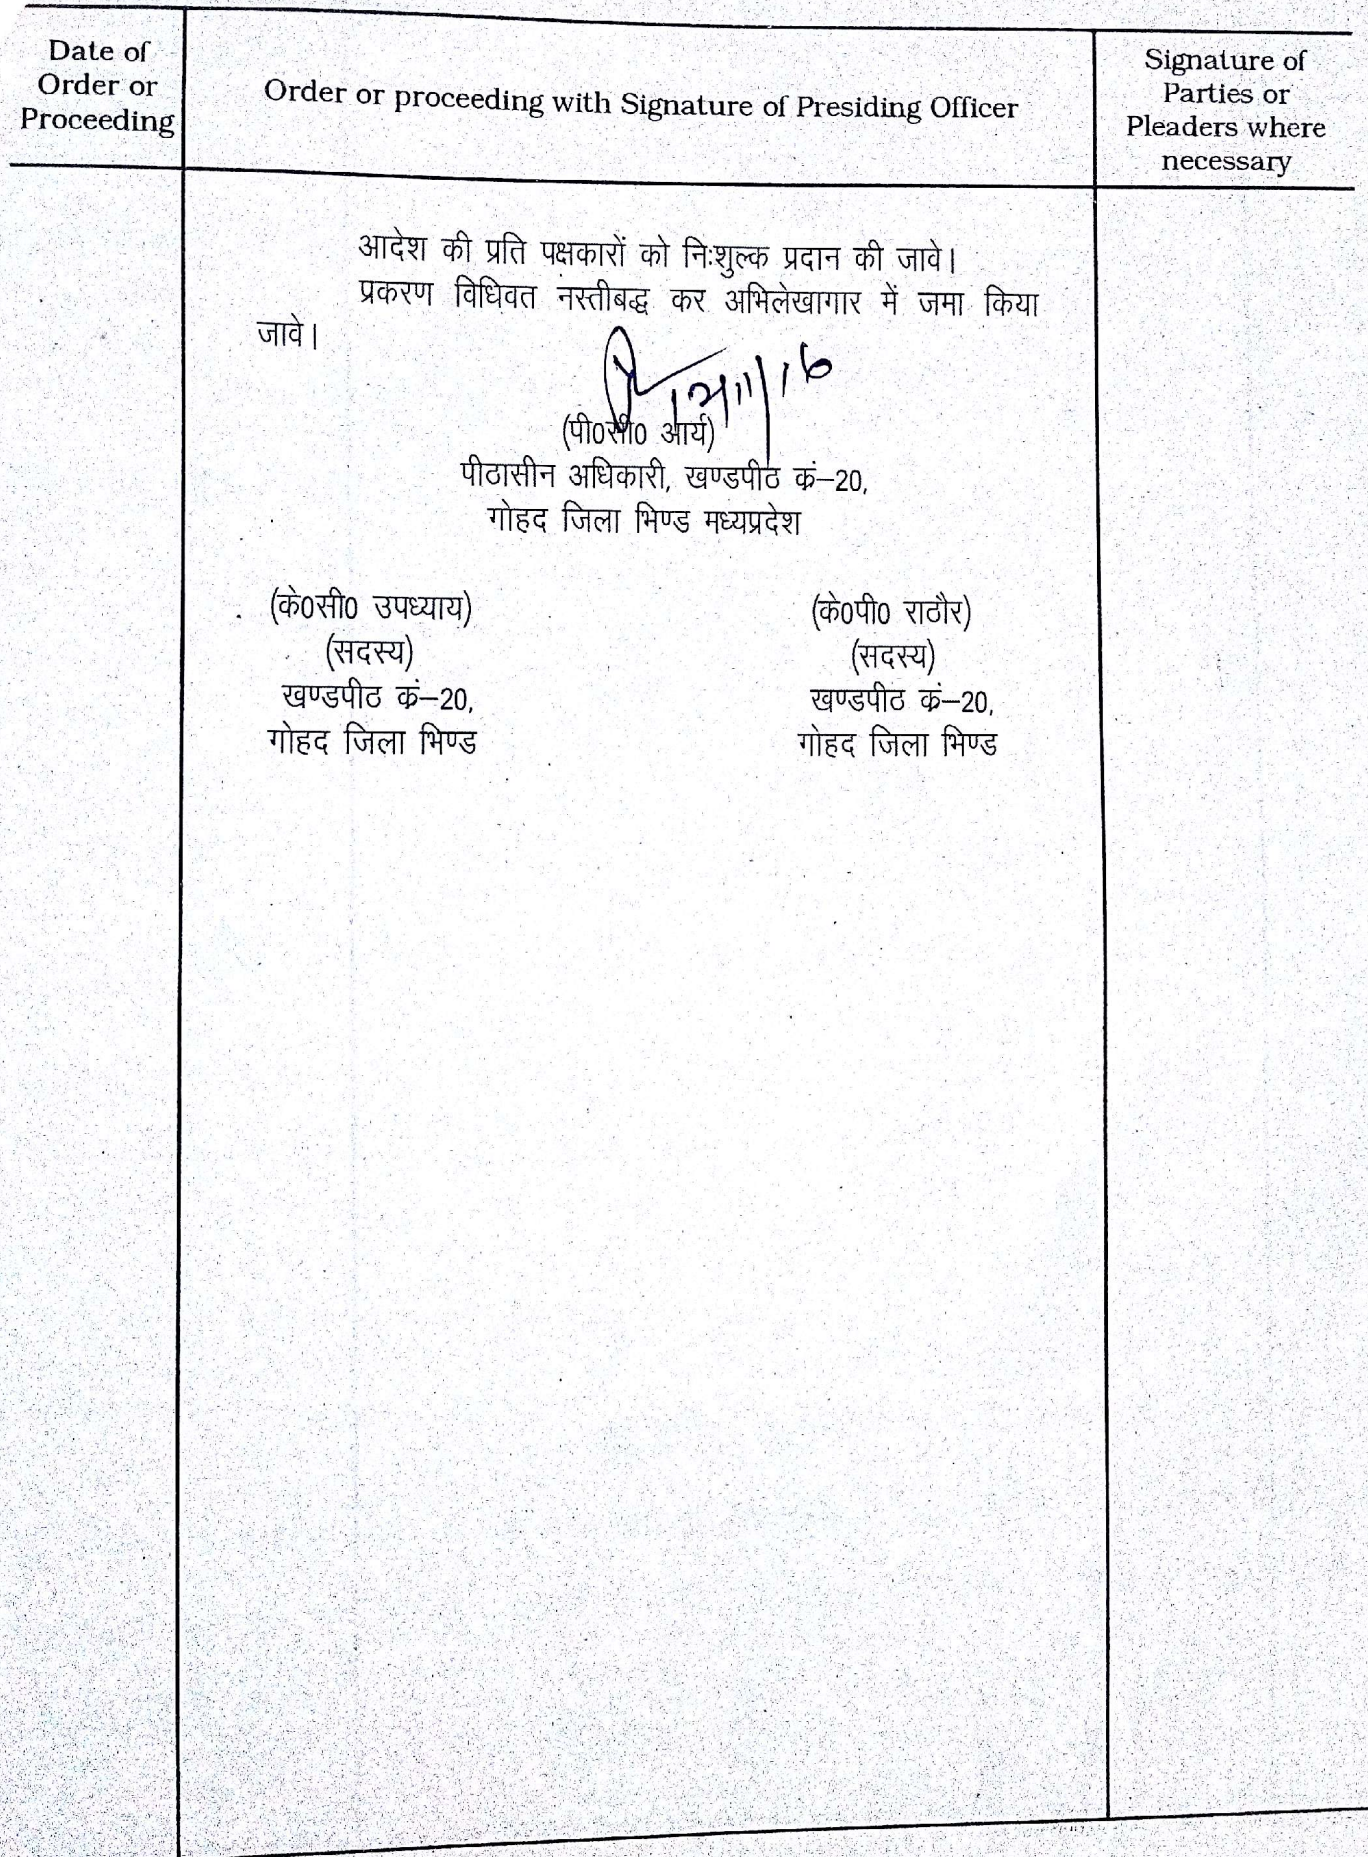 Date of
Order or
Proceeding
Order or proceeding with Signature of Presiding Officer
Signature of
Parties or
Pleaders where
necessary
आदेश की प्रति पक्षकारों को निःशुल्क प्रदान की जावे।
प्रकरण विधिवत नस्तीबद्ध कर अभिलेखागार में जमा किया
जावे।
(पी0सी0 आर्य)
पीठासीन अधिकारी, खण्डपीठ कं–20,
गोहद जिला भिण्ड मध्यप्रदेश
(के0सी0 उपध्याय)
(सदस्य)
खण्डपीठ कं–20,
गोहद जिला भिण्ड
(के0पी0 राठौर)
(सदस्य)
खण्डपीठ कं–20,
गोहद जिला भिण्ड